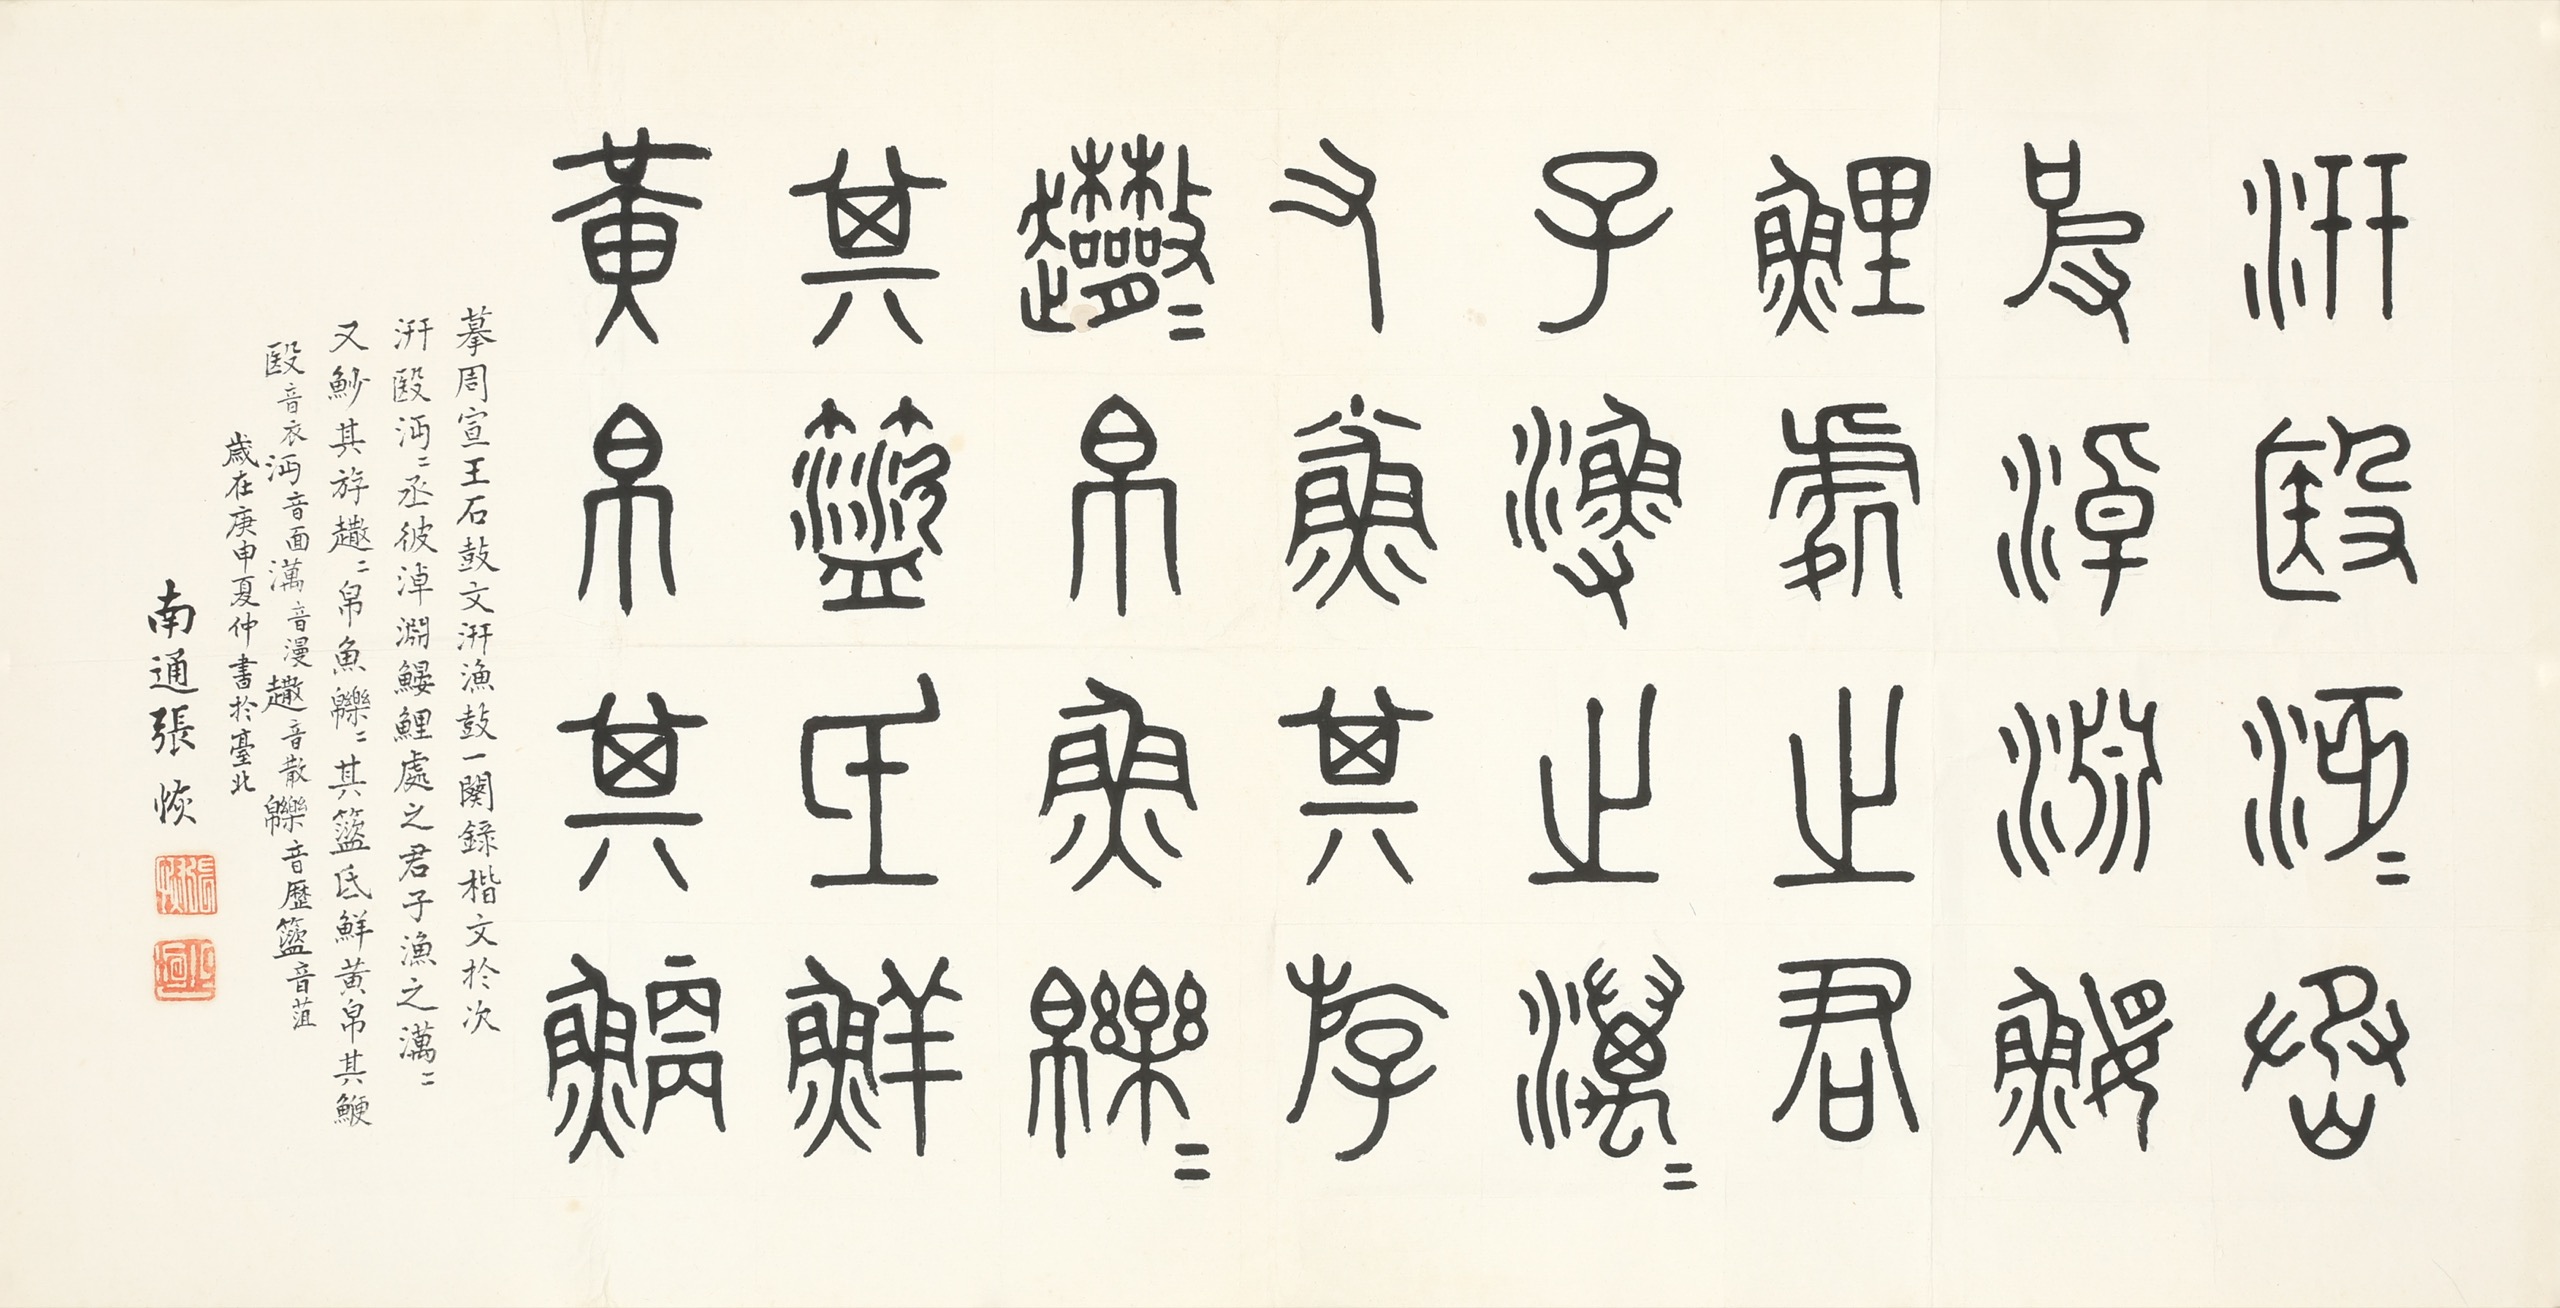 汧殹沔＝丞
彼淖淵鰋
鯉處之君
子漁之澫＝
又鯊其斿
趱＝帛魚𩼮＝
其籃氐鮮
黃帛其鯾
摹周宣王石鼓文汧漁鼓一闋錄楷文於次
汧殹沔＝丞彼淖淵鰋鯉處之君子漁之澫＝
又魦其斿＝帛魚＝其氐鮮黃帛其鯾
殹音衣沔音面澫音漫音散音歷音菹
歲在庚申夏仲書於臺北
南通張恢